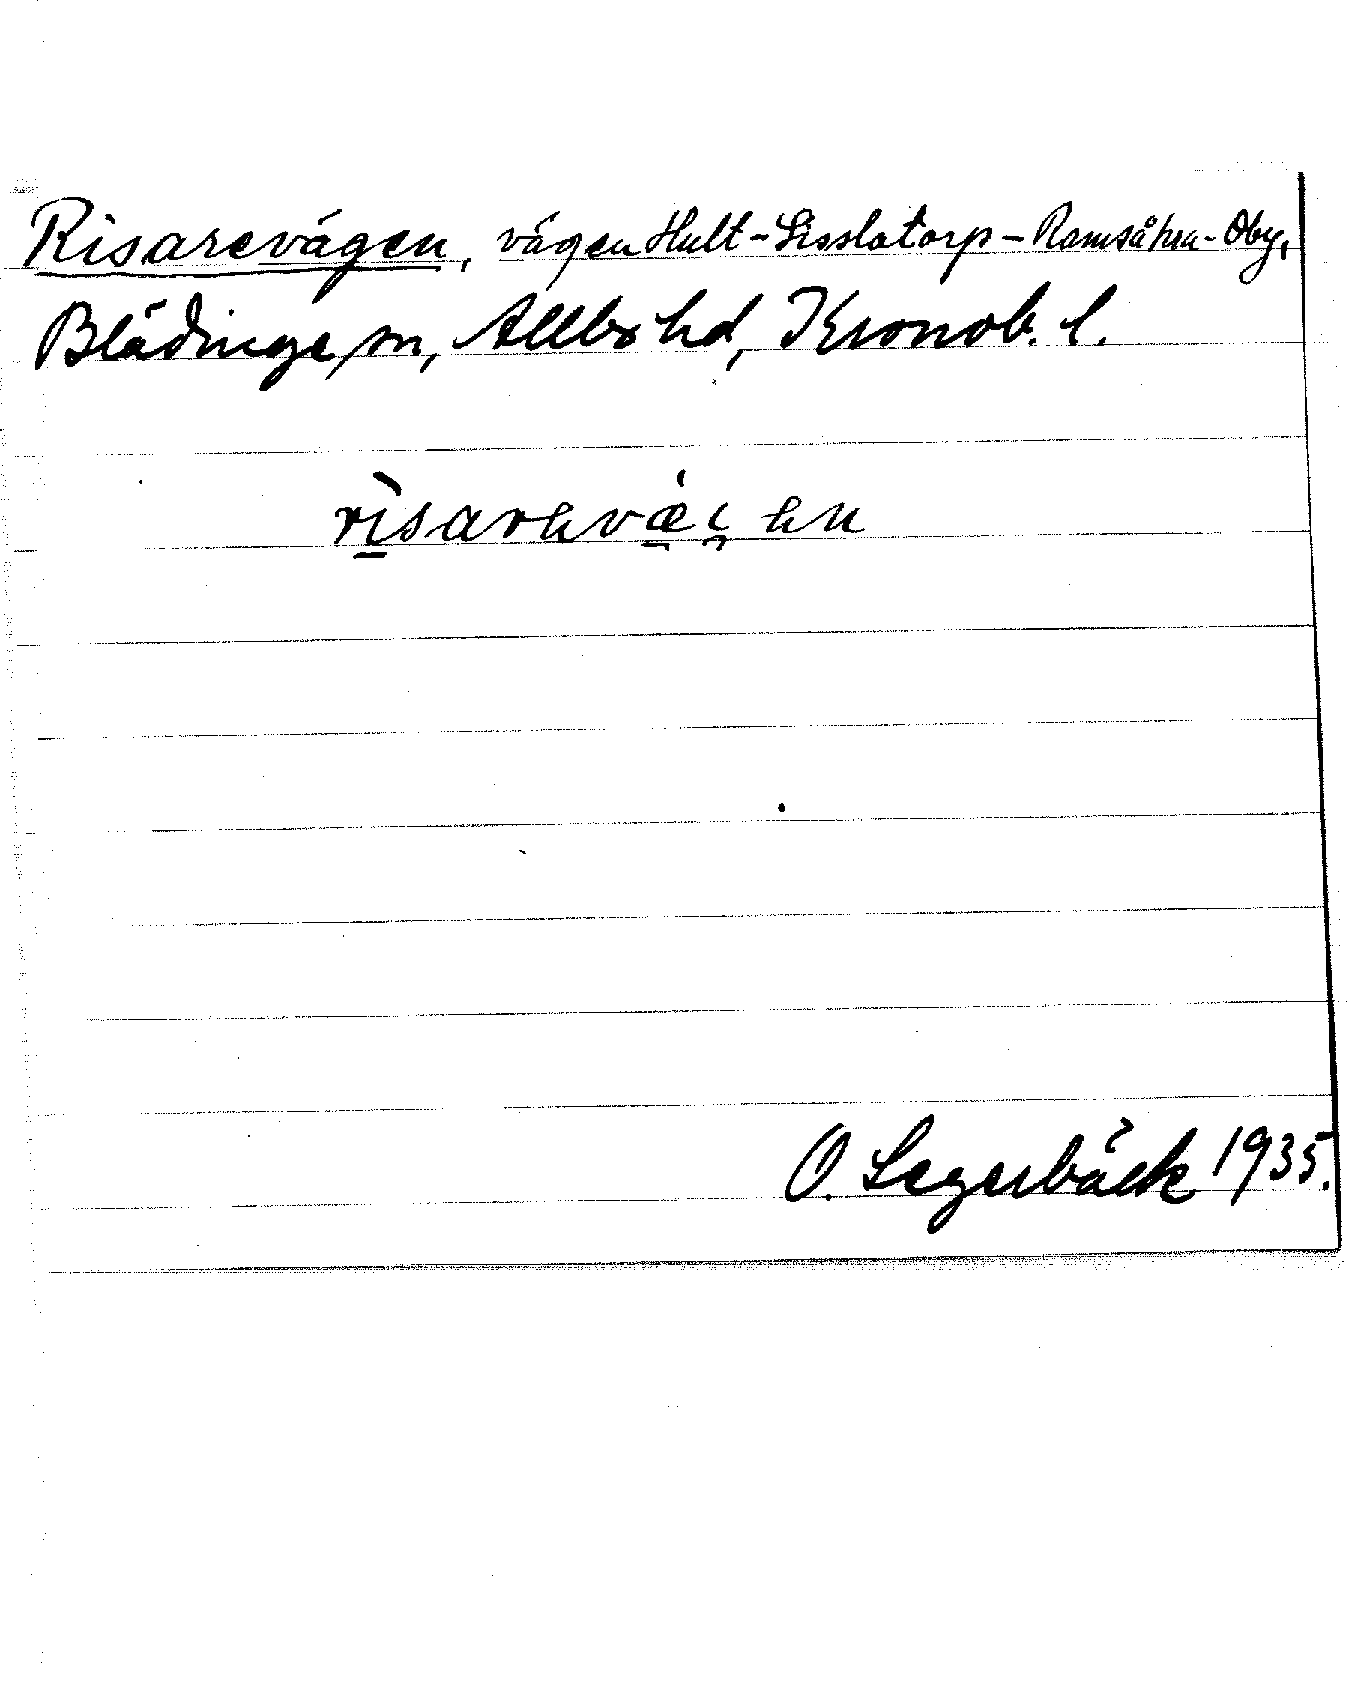 Risarevägen, vägen Hult-Sisslatorp-Ramsåkra-Oby,
Blädinge sn, Allbo hd, Kronob. l.
O. Segerbäck 1935.